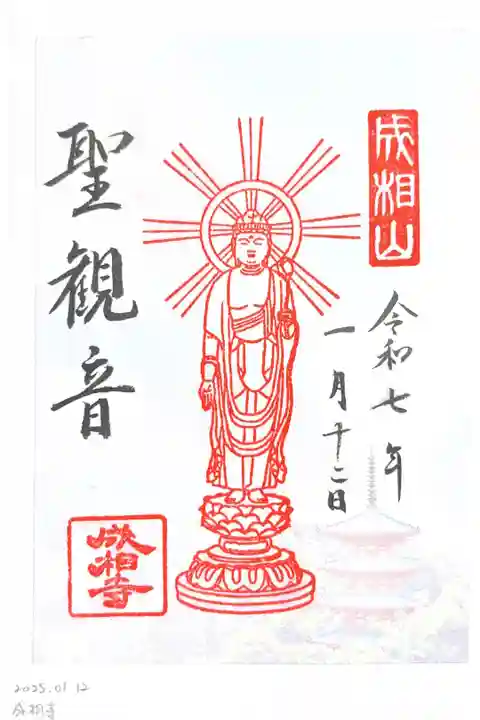 成相山
令和七年
一月十二日
聖観音
成相寺
2025.01 12
成相寺